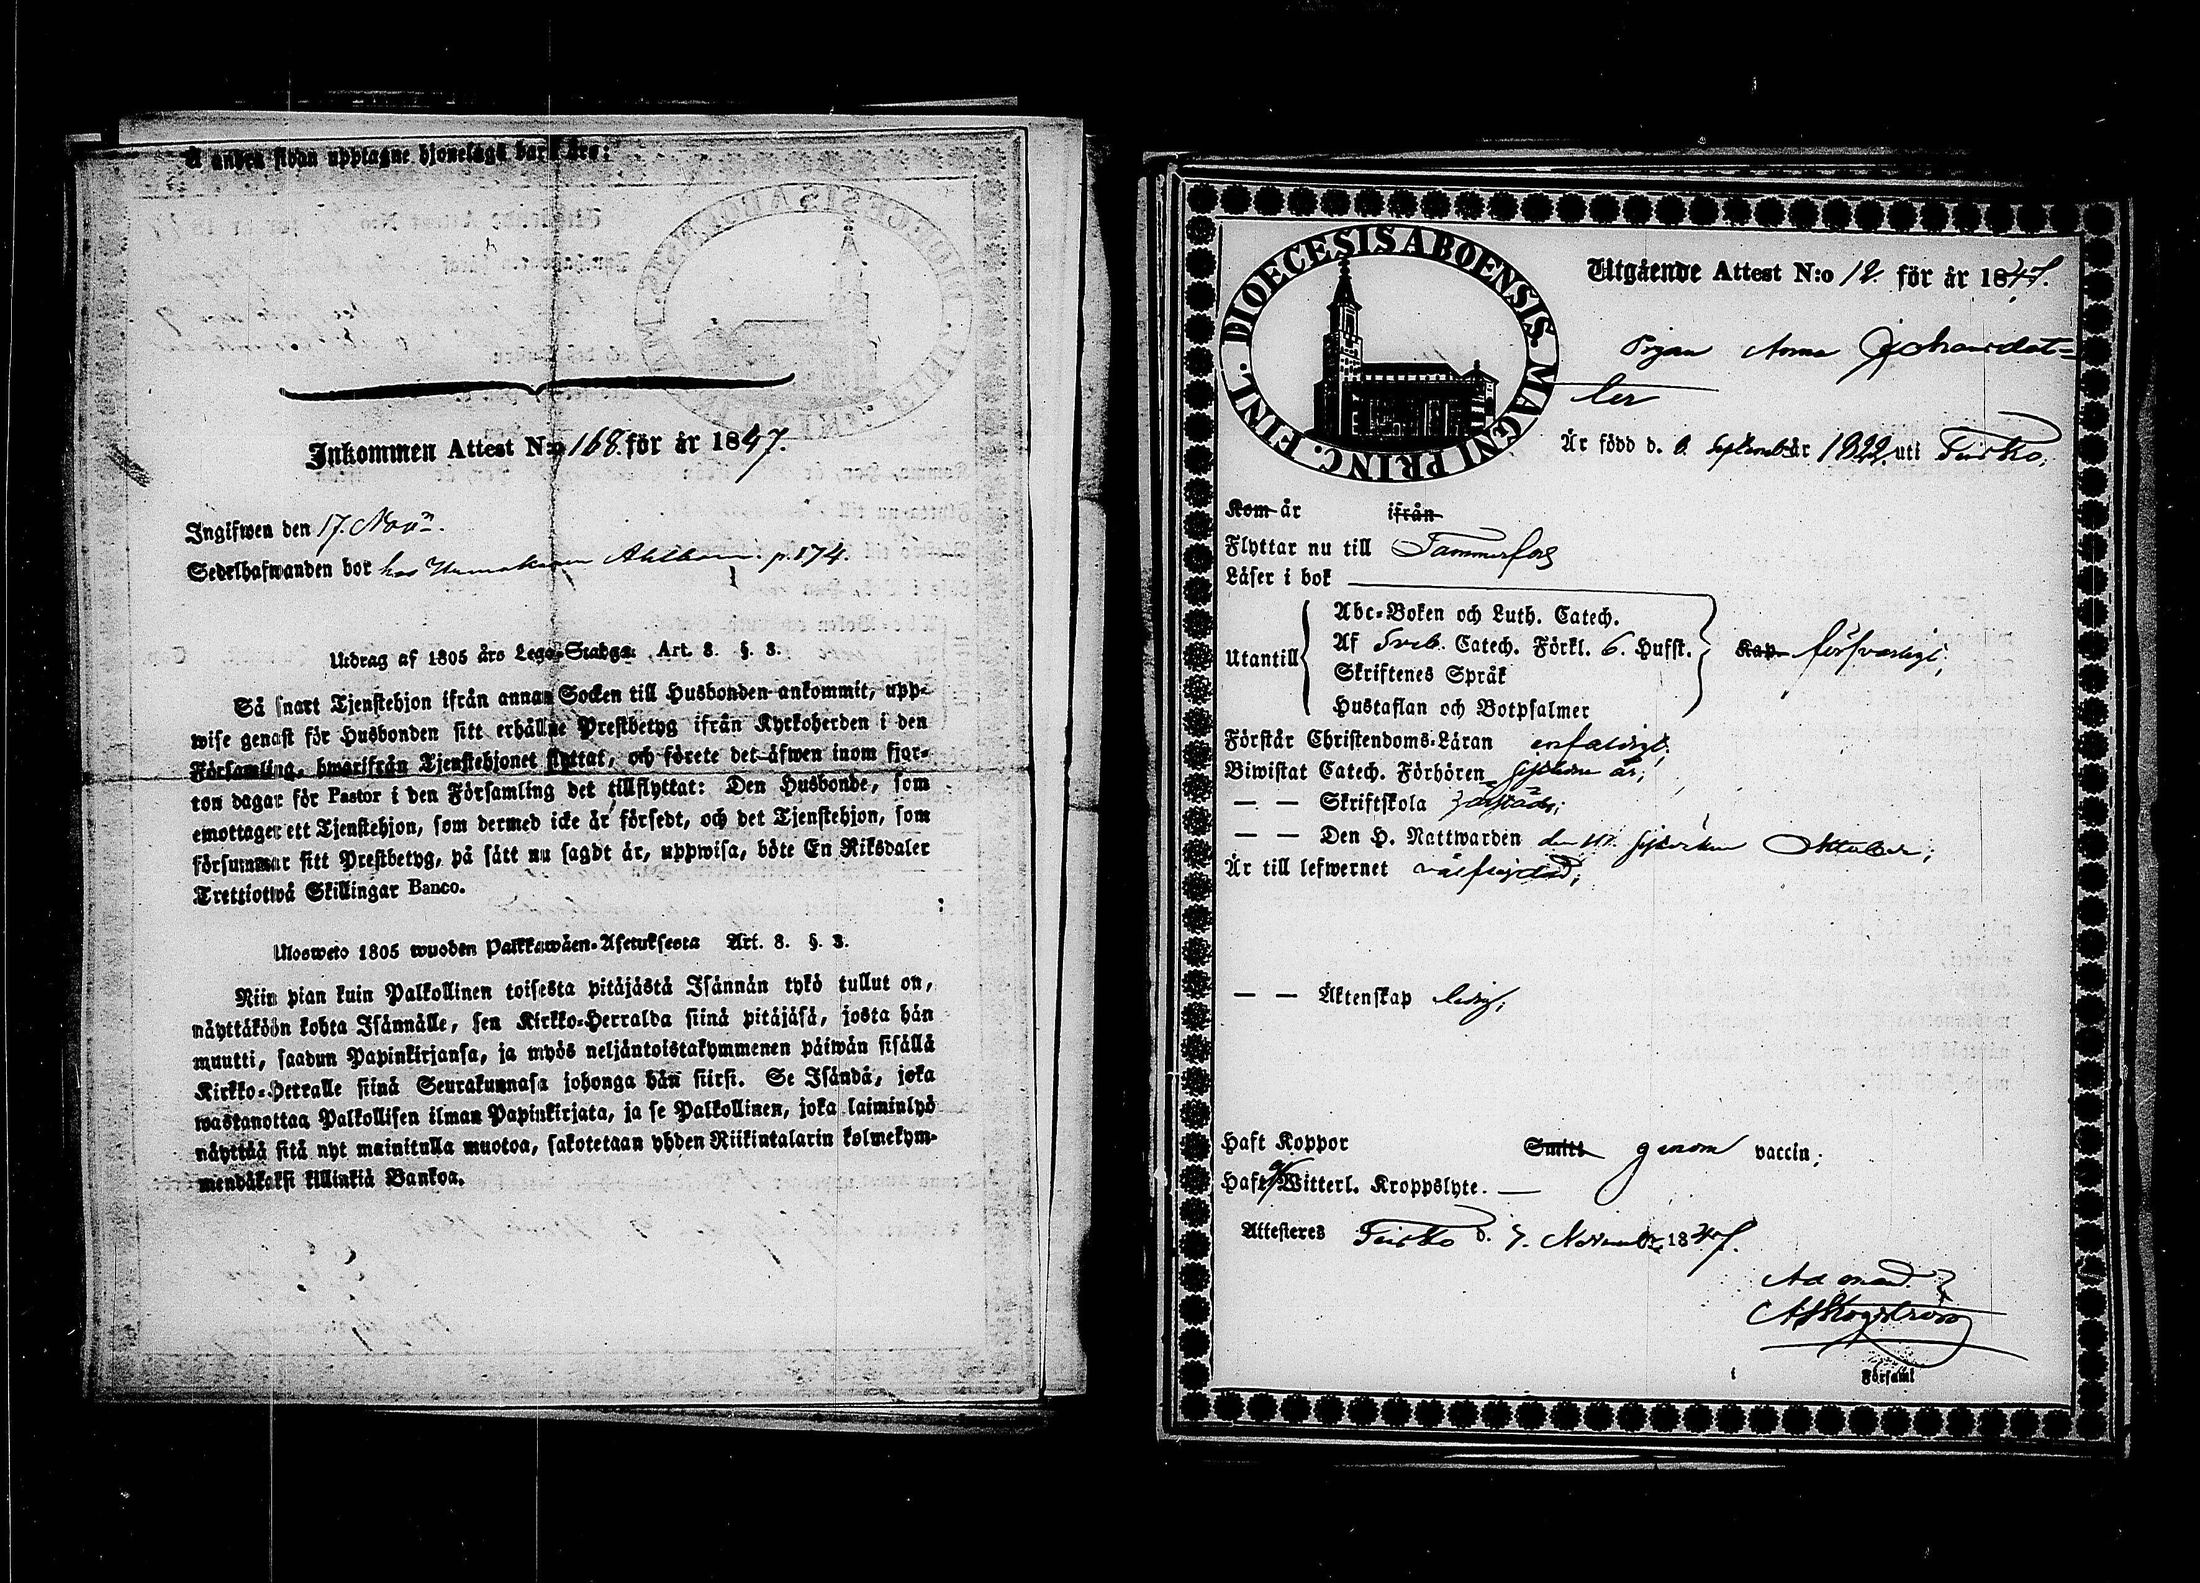 Å andra sidan upptagne hjonelags barn äro:
Inkommen Attest N:o 168. för år 1847.
Ingifwen den 17. Nov.
Sedelhafwanden bor hos Ahlbom p. 174.
Utdrag af 1805 års Lego-Stadga: Art. 8. §. 8.
Så snart Tjenstehjon ifrån annan Socken till Husbonden ankommit, upp-
wise genast för Husbonden sitt erhållne Prestbetyg ifrån Kyrkoherden i den
Församling, hwarifrån Tjenstehjonet flyttat, och förete det äfwen inom fjor-
ton dagar för Pastor i den Församling det tillflyttat: Den Husbonde, som
emottager ett Tjenstehjon, som dermed icke är försedt, och det Tjenstehjon, som
försummar sitt Prestbetyg, på sätt nu sagdt är, uppwisa, böte En Riksdaler
Trettiotwå Skillingar Banco.
Ulosweto 1805 wuoden Palkkawäen-Asetuksesta Art. 8. §. 8.
Niin pian kuin Palkollinen toisesta pitäjästä Isännän tykö tullut on,
näyttäköön kohta Isännälle, sen Kirkko-Herralda siinä pitäjäsä, josta hän
muutti, saadun Papinkirjansa, ja myös neljäntoistakymmenen päiwän sisällä
Kirkko-Herralle siinä Seurakunnasa johonga hän siirsi. Se Isändä, joka
wastanottaa Palkollisen ilman Papinkirjata, ja se Palkollinen, joka laiminlyö
näyttää sitä nyt mainitulla muotoa, sakotetaan yhden Riikintalarin kolmekym-
mendäkaksi killinkiä Bankoa.
DIOECESIS ABOENSIS. MAGNI PRINC. FINL.
Utgående Attest N:o 12. för år 1847.
Pigan Anna Johansdot-
ter
Är född d. 8 September 1822. uti Tursko.
Kom år ifrån
Flyttar nu till Tammerfors
Läser i bok
Abc-Boken och Luth. Catech.
Af Sveb. Catech. Förkl. 6. Hufst.
Utantill
Kap. försvarligt;
Skriftenes Språk
Hustaflan och Botpsalmer
Förstår Christendoms-Läran enfaldigt;
Biwistat Catech. Förhören sistledne år;
— — Skriftskola
— — Den H. Nattwarden den sistlidne October;
Är till lefwernet välfrejdad;
— — Äktenskap ledig;
Haft Koppor Smitt genom vaccin;
Haft ej Witterl. Kroppslyte. —
Attesteres Tursko d. 7. November 1847.
Församl